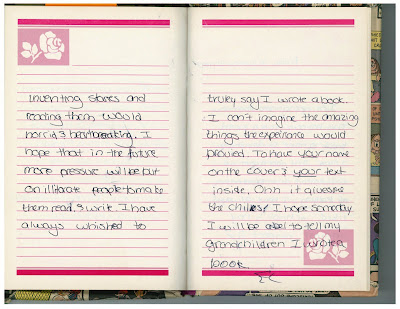 Inventing stores and
reading them would
horrid & heartbreaking. I
hope that in the future
more pressure will be put
on illitarate people to make
them read & write. I have
always whished to
truley say I wrote a book.
I can't imagine the amazing
things the experiance would
provied. To have your name
on the cover & your text
inside. Ohh it gives me
the chiles! I hope someday
I will be abel to tell my
grandchildren I wrote a
book.